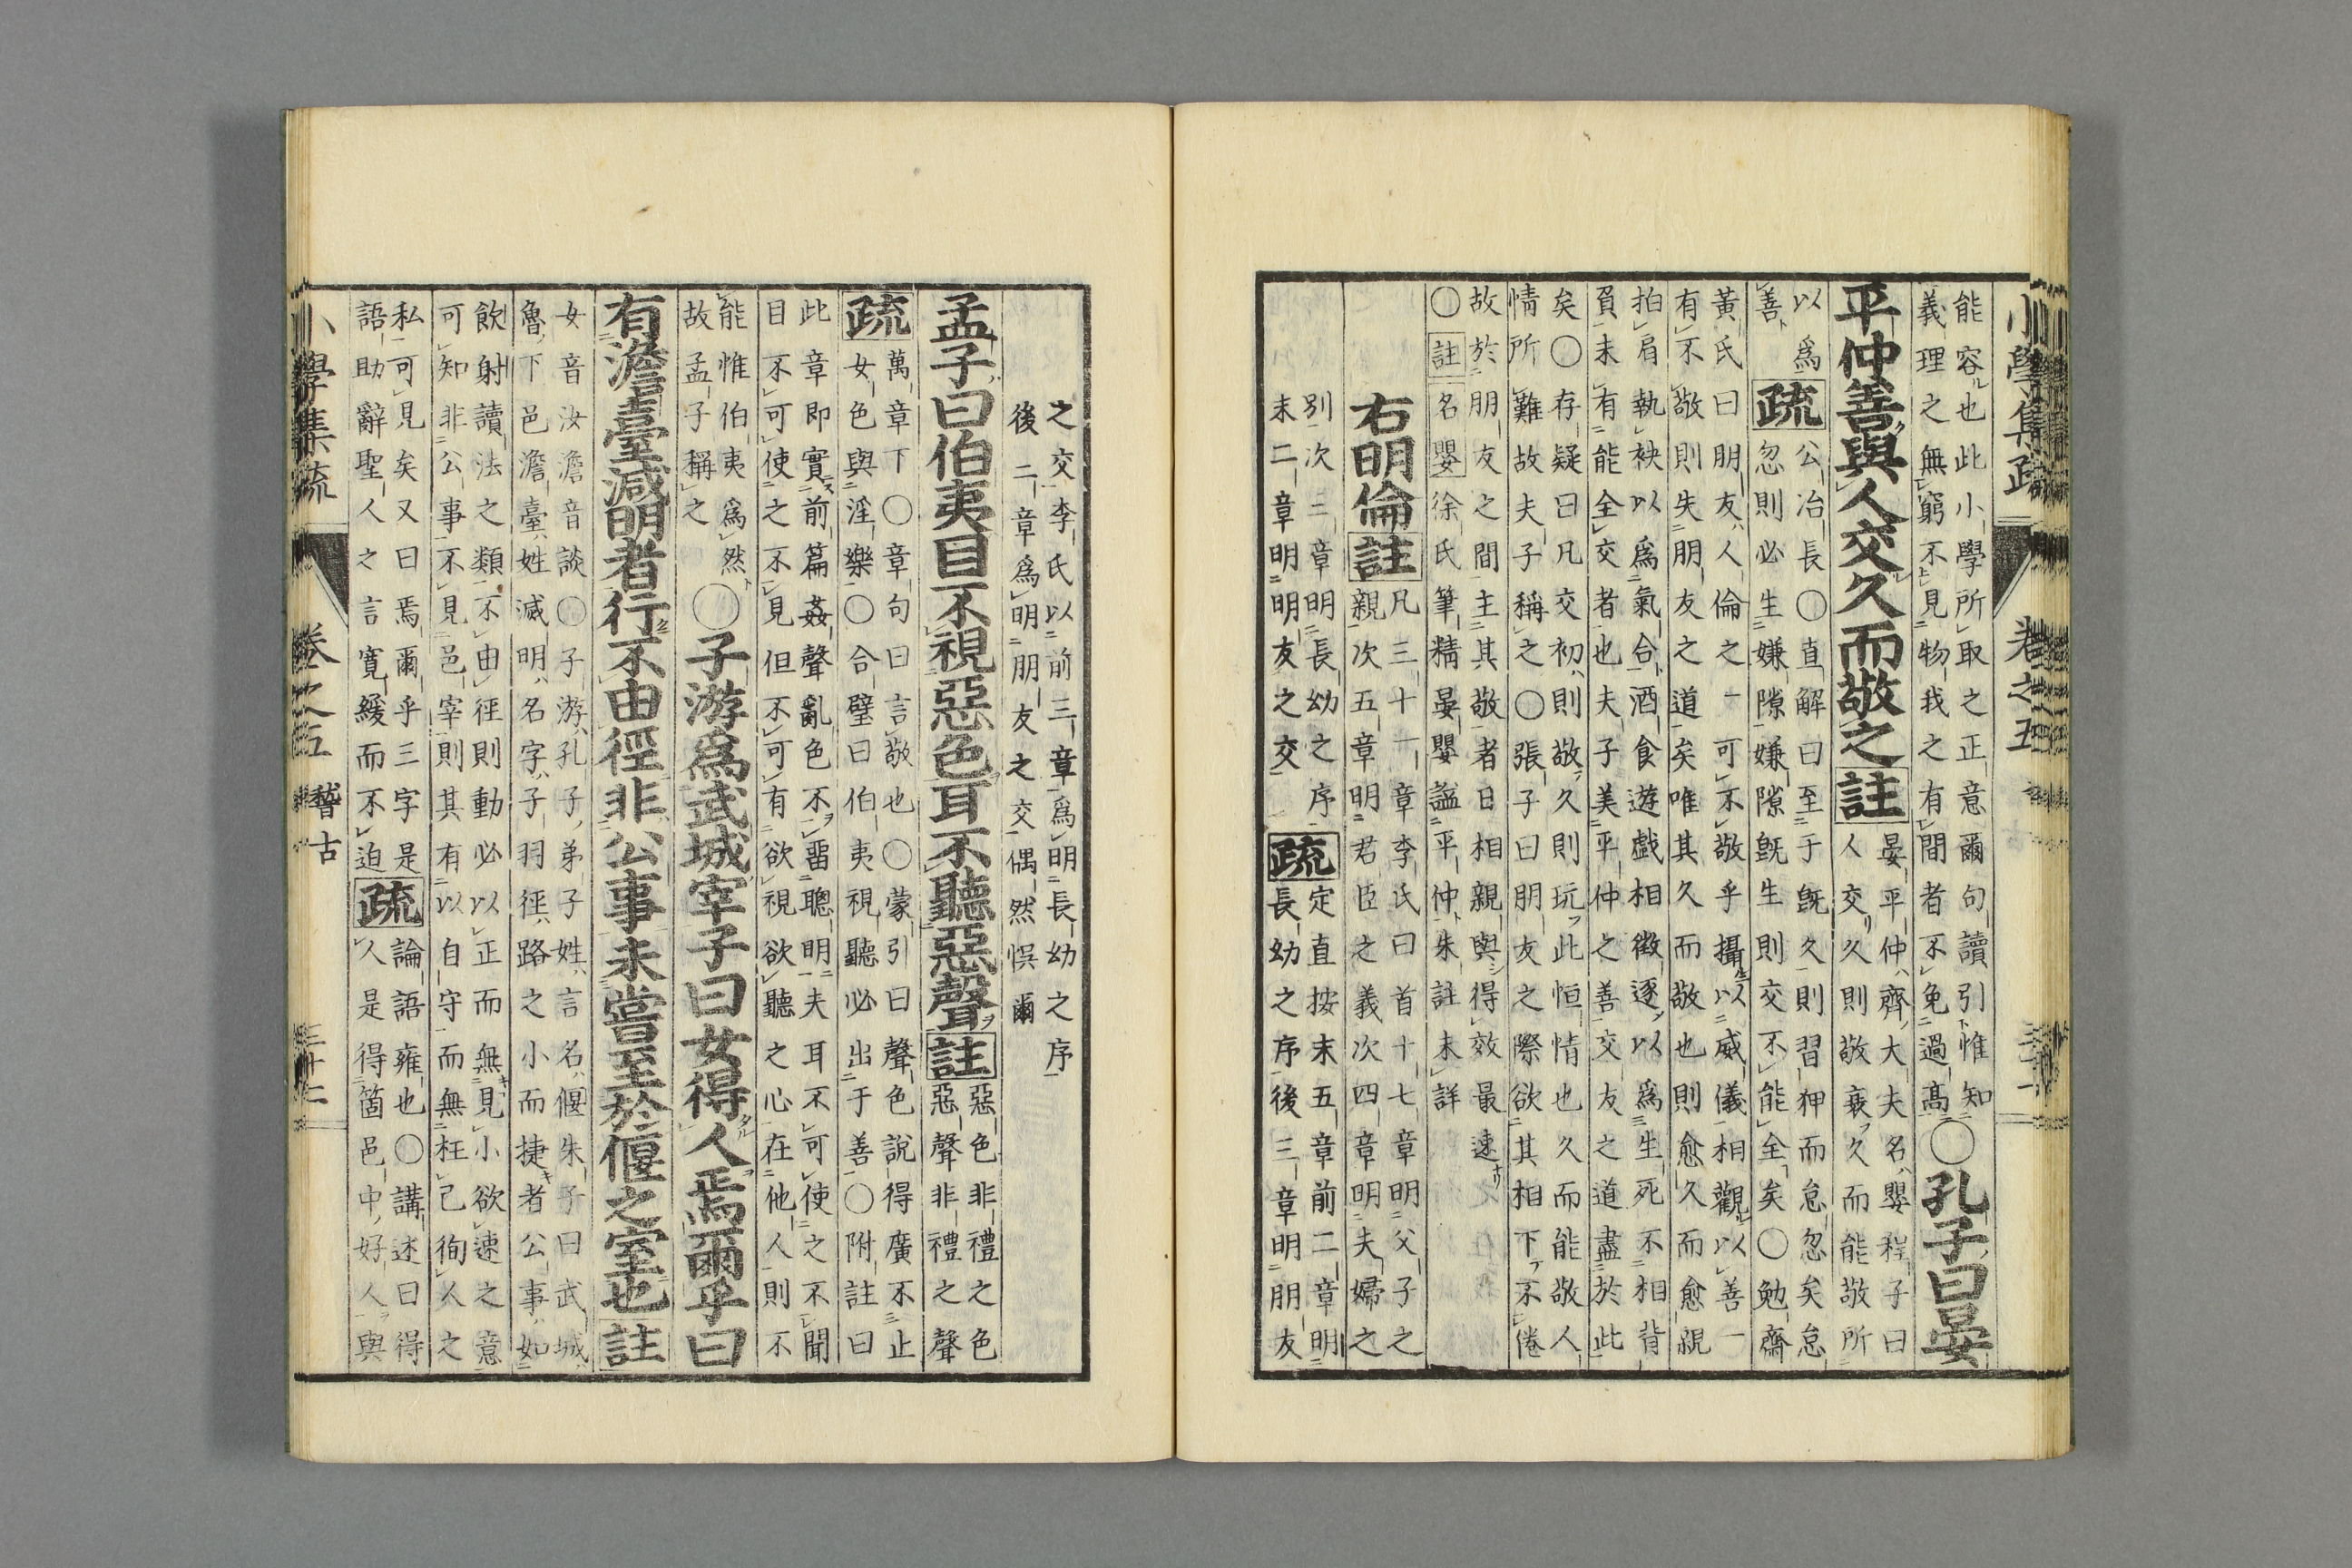 小學集疏 卷之五
能容也此小學所取之正意爾句讀引惟知
義理之無窮不見物我之有間者不免過高
〇孔子曰晏
平仲善與人交久而敬之註
晏平仲齊大夫名嬰程子曰
人交久則敬衰久而能敬所
以爲
善
疏
公冶長〇直解曰至于既久則習狎而怠忽矣怠
忽則必生嫌隙嫌隙既生則交不能全矣〇勉齋
黃氏曰朋友人倫之一可不敬乎攝以威儀相觀以善一
有不敬則失朋友之道矣唯其久而敬也則愈久而愈親
拍肩執袂以爲氣合酒食遊戲相徵逐以爲生死不相背
負未有能全交者也夫子美平仲之善交友之道盡於此
矣〇存疑曰凡交初則敬久則玩此恒情也久而能敬人
情所難故夫子稱之〇張子曰朋友之際欲其相下不倦
故於朋友之間主其敬者日相親與得效最速
〇註名嬰徐氏筆精晏嬰謚平仲朱註未詳
右明倫註
凡三十一章李氏曰首十七章明父子之
親次五章明君臣之義次四章明夫婦之
別次三章明長幼之序
末二章明明友之交
疏
定直按末五章前二章明
長幼之序後三章明朋友
之交李氏以前三章爲明長幼之序
後二章爲明朋友之交偶然悞爾
孟子曰伯夷目不視惡色耳不聽惡聲註
惡色非禮之色
惡聲非禮之聲
疏
萬章下〇章句曰言敬也〇蒙引曰聲色說得廣不止
女色與淫樂〇合璧曰伯夷視聽必出于善〇附註曰
此章即實前篇姦聲亂色不畱聰明夫耳不可使之不聞
目不可使之不見但不可有欲視欲聽之心在他人則不
能惟伯夷爲然
故孟子稱之
〇子游爲武城宰子曰女得人焉爾乎曰
有澹臺滅明者行不由徑非公事未嘗至於偃之室也註
女音汝澹音談〇子游孔子弟子姓言名偃朱子曰武城
魯下邑澹臺姓滅明名字子羽徑路之小而捷者公事如
飲射讀法之類不由徑則動必以正而無見小欲速之意
可知非公事不見邑宰則其有以自守而無枉己徇人之
私可見矣又曰焉爾乎三字是
語助辭聖人之言寬緩而不迫
疏
論語雍也〇講述曰得
人是得箇邑中好人與
小學集疏 卷之五 稽古 三十二